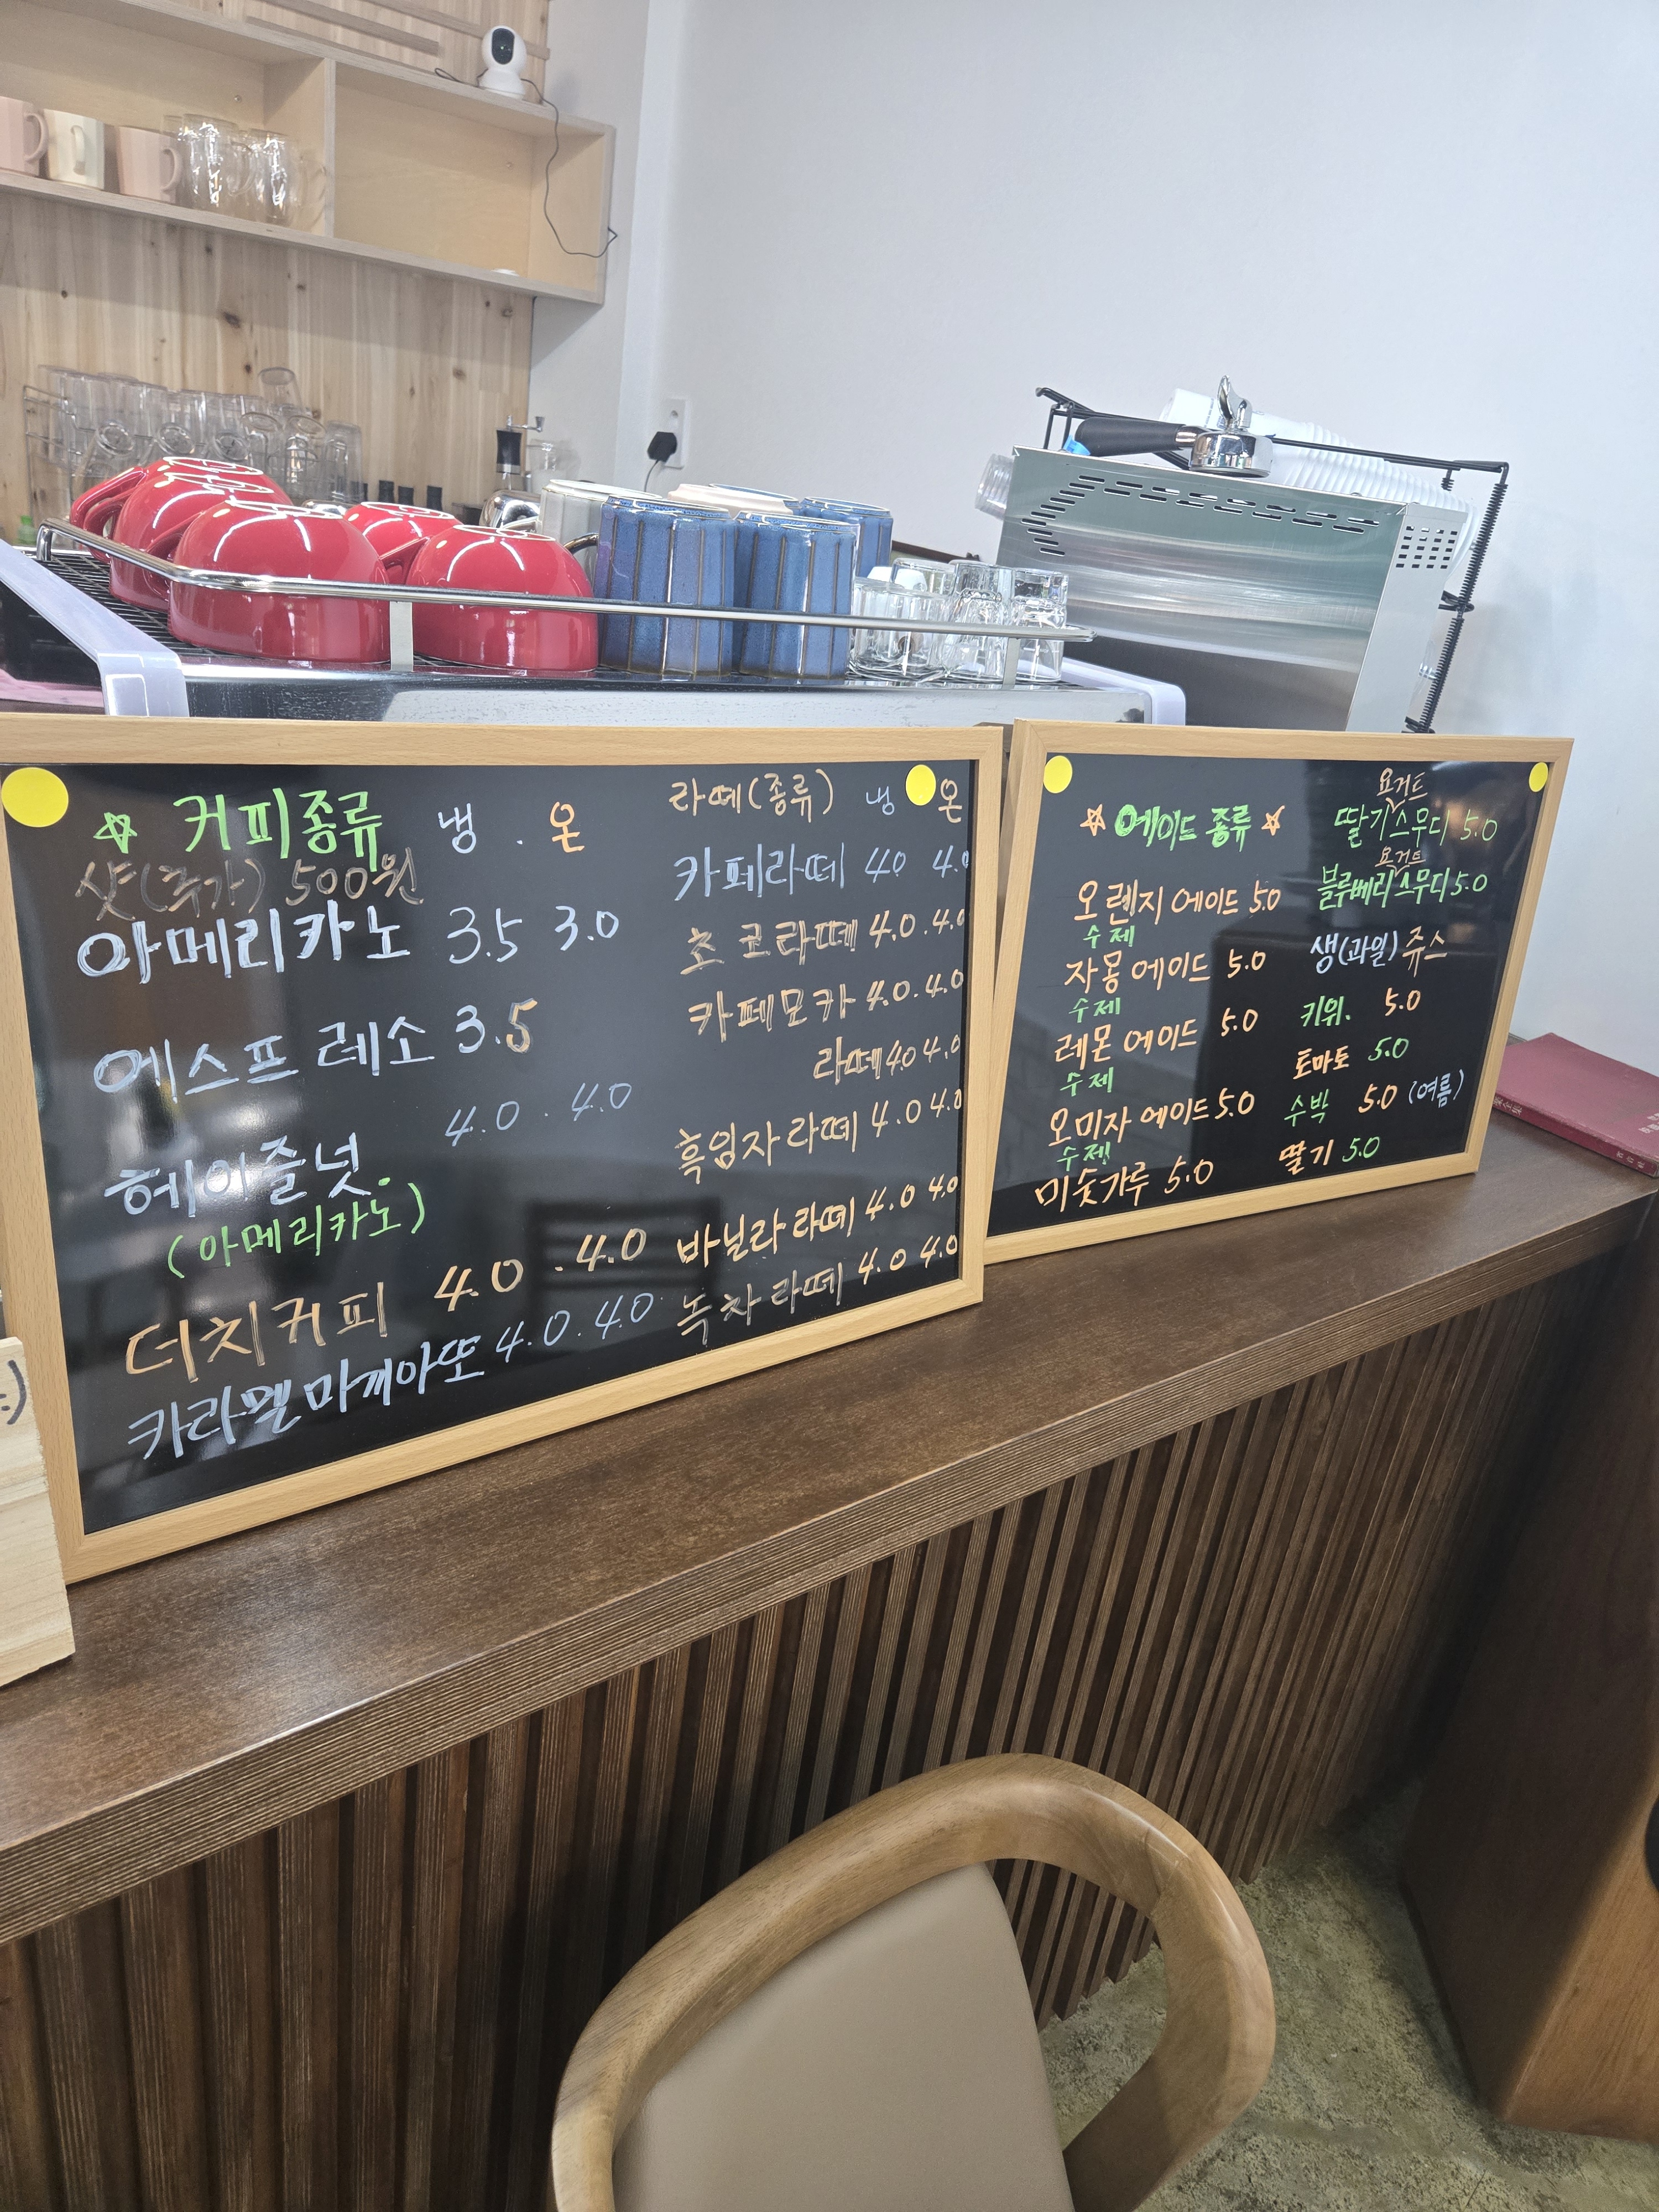 커피종류 냉 . 온
샷(추가) 500원
아메리카노 3.5 3.0
에스프레소 3.5
4.0 . 4.0
헤이즐넛
(아메리카노)
더치커피 4.0 . 4.0
카라멜마끼아또 4.0 . 4.0
라떼(종류) 냉 온
카페라떼 4.0 4.0
초코라떼 4.0 . 4.0
카페모카 4.0 . 4.0
라떼 4.0 4.0
흑임자라떼 4.0 4.0
바닐라라떼 4.0 4.0
녹차라떼 4.0 4.0
에이드 종류
오렌지 에이드 5.0
수제
자몽 에이드 5.0
수제
레몬 에이드 5.0
수제
오미자 에이드 5.0
수제
미숫가루 5.0
요거트
딸기스무디 5.0
요거트
블루베리스무디 5.0
생(과일)쥬스
키위. 5.0
토마토 5.0
수박 5.0 (여름)
딸기 5.0